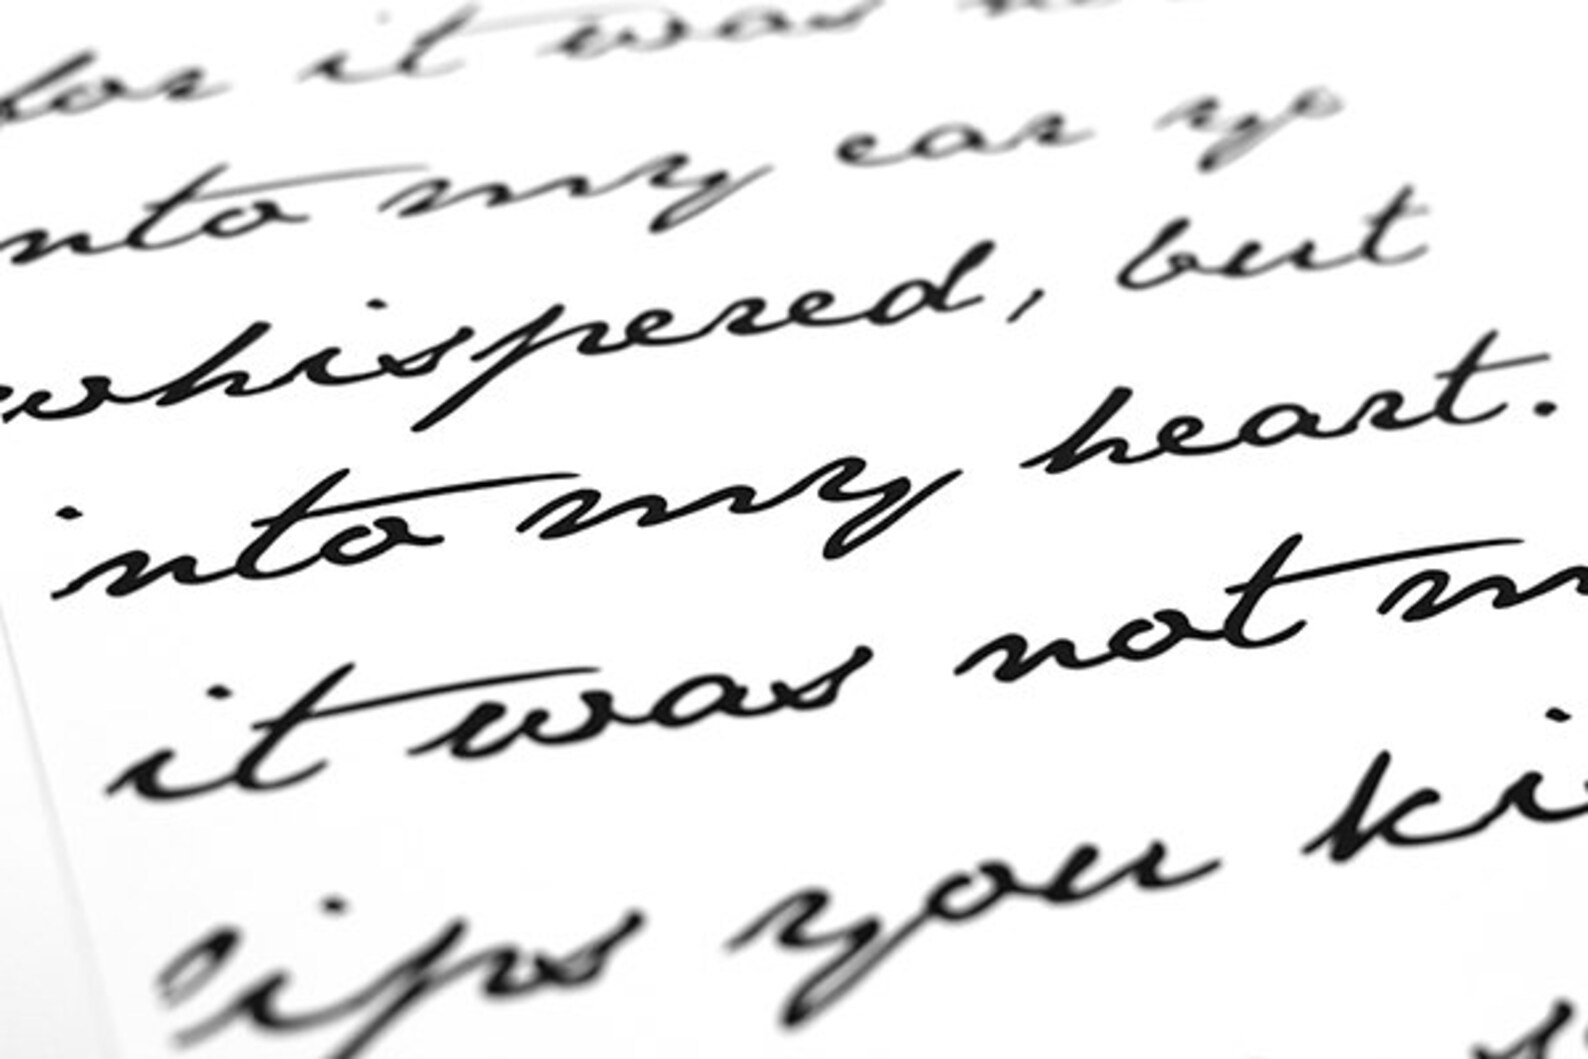 for it was
into my ear yo
whispered, but
into my heart.
it was not m
lips you ki